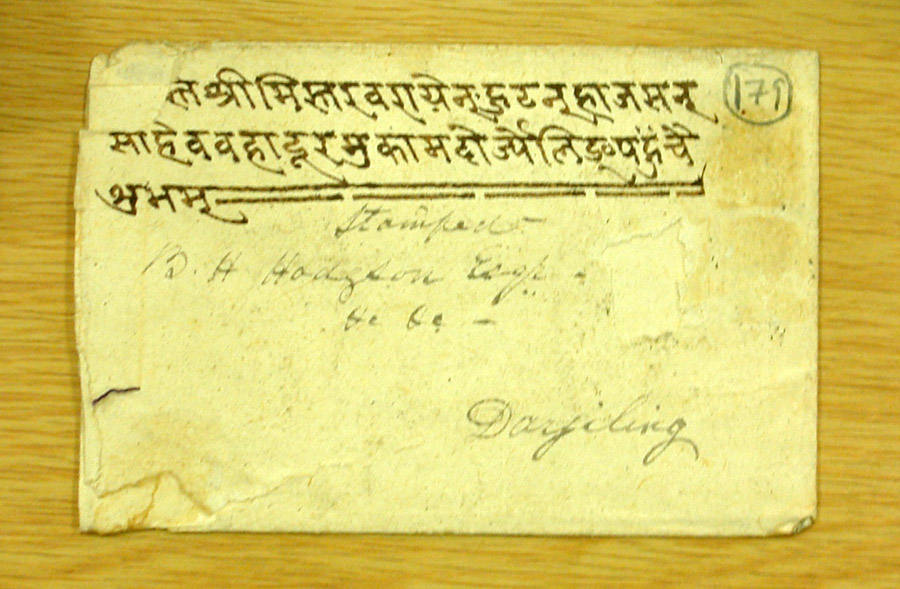 ल श्री मिस्तर वरायेन् हटन् हाजसन्
साहेव वहादूर मुकाम दोर्ज्येलिङ पहुंचै
शुभम्
179
Stamped
B. H Hodgson Esqr
&c &c
Darjiling